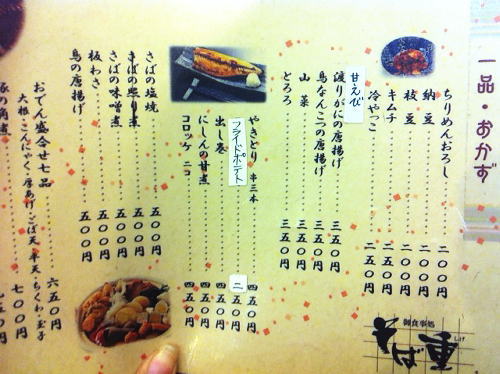 一品・おかず
ちりめんおろし 二〇〇円
納豆 二〇〇円
枝豆 二〇〇円
キムチ 二五〇円
冷やっこ 二五〇円
甘えび
渡りがにの唐揚げ 三五〇円
鳥なんこつの唐揚げ 三五〇円
山菜 三五〇円
とろろ 三五〇円
やきとり 串三本 四五〇円
フライドポテト 二五〇円
出し巻 四五〇円
にしんの甘煮 四五〇円
コロッケ 二コ 四五〇円
さばの塩焼 五〇〇円
さばの照り煮 五〇〇円
さばの味噌煮 五〇〇円
板わさ 五〇〇円
鳥の唐揚げ 五〇〇円
おでん盛合せ七品 六五〇円
大根・こんにゃく・厚あげ・ごぼ天・平天・ちくわ・玉子 七〇〇円
豚の角煮
御食事処
そば重